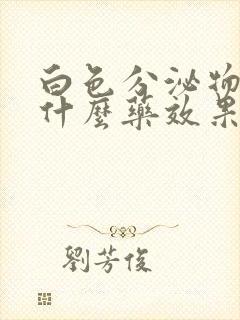 白色分泌物
什麼藥效果
劉芳俊